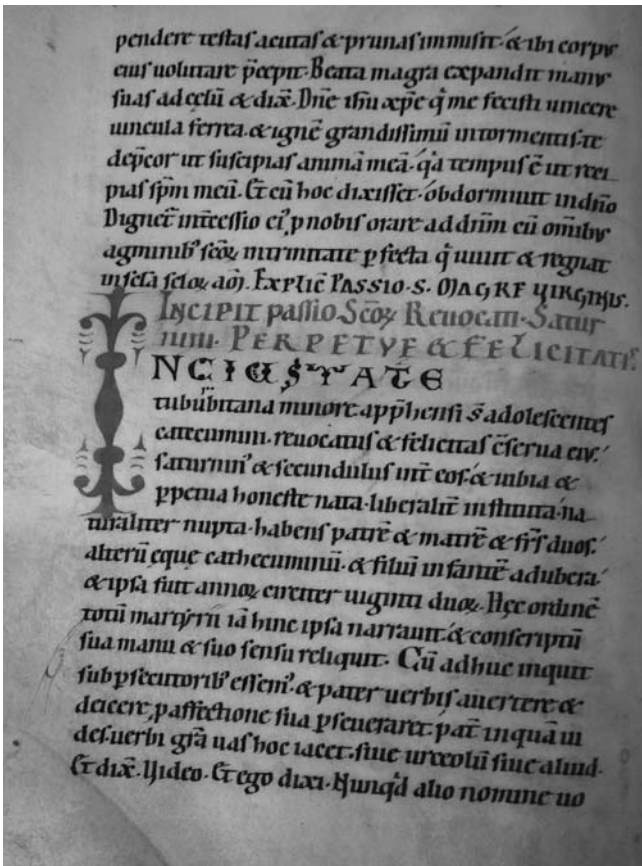 pendere testas acutas & prunas immisit· & ibi corpus
eius uolutare p̄cepit· Beata magra expandit manus
suas ad celū & dix̄· Dn̄e ih̄u xp̄e q̄ me fecisti uincere
uincula ferrea· & ignē grandissimū in tormentis· te
dep̄cor ut suscipias animā meā· q̓a tempus ē ut reci
pias sp̄m meū· Et cū hoc dixisset· obdormiuit in dn̄o
Dignet̄ int̄cessio ei᾽ p nobis orare ad dn̄m cū om̄ibus
agminib᾽ sc̄oꝝ in trinitate ꝑfecta q̄ uiuit & regnat
in sc̄la sc̄loꝝ am̄· EXPLIC̄ PASSIO· S· MAGRE VIRGINIS·
INCIPIT passio Sc̄oꝝ Reuocati· Satur
nini· PERPETVE & FELICITATIS·
IN CIUITATE
tuburbitana minore app̄hensi s̄ adolescentes
catecumini· reuocatus & felicitas c̄serua eius·
saturnin᾽ & secundulus int̄ eos· & uibia &
ꝑpetua honeste nata· liberalit̄ instituta· na
turaliter nupta· habens patrē & matrē & fr̄s duos·
alterū eque cathecuminū· & filiū infantē ad ubera·
& ipsa fuit annoꝝ circiter uiginti duoꝝ· Hec ordinē
totū martyrii iā hinc ipsa narrauit· & conscriptū
sua manu & suo sensu reliquit· Cū adhuc inquit
sub ꝑsecutorib᾽ essem᾽· & pater uerbis auertere &
deicere, p affectione sua ꝑseueraret· pat̄ inquā ui
des· uerbi gr̄a uas hoc iacet· siue urceolū siue aliud·
Et dix̄· Video· Et ego dixi· Nunq̓d alio nomine uo